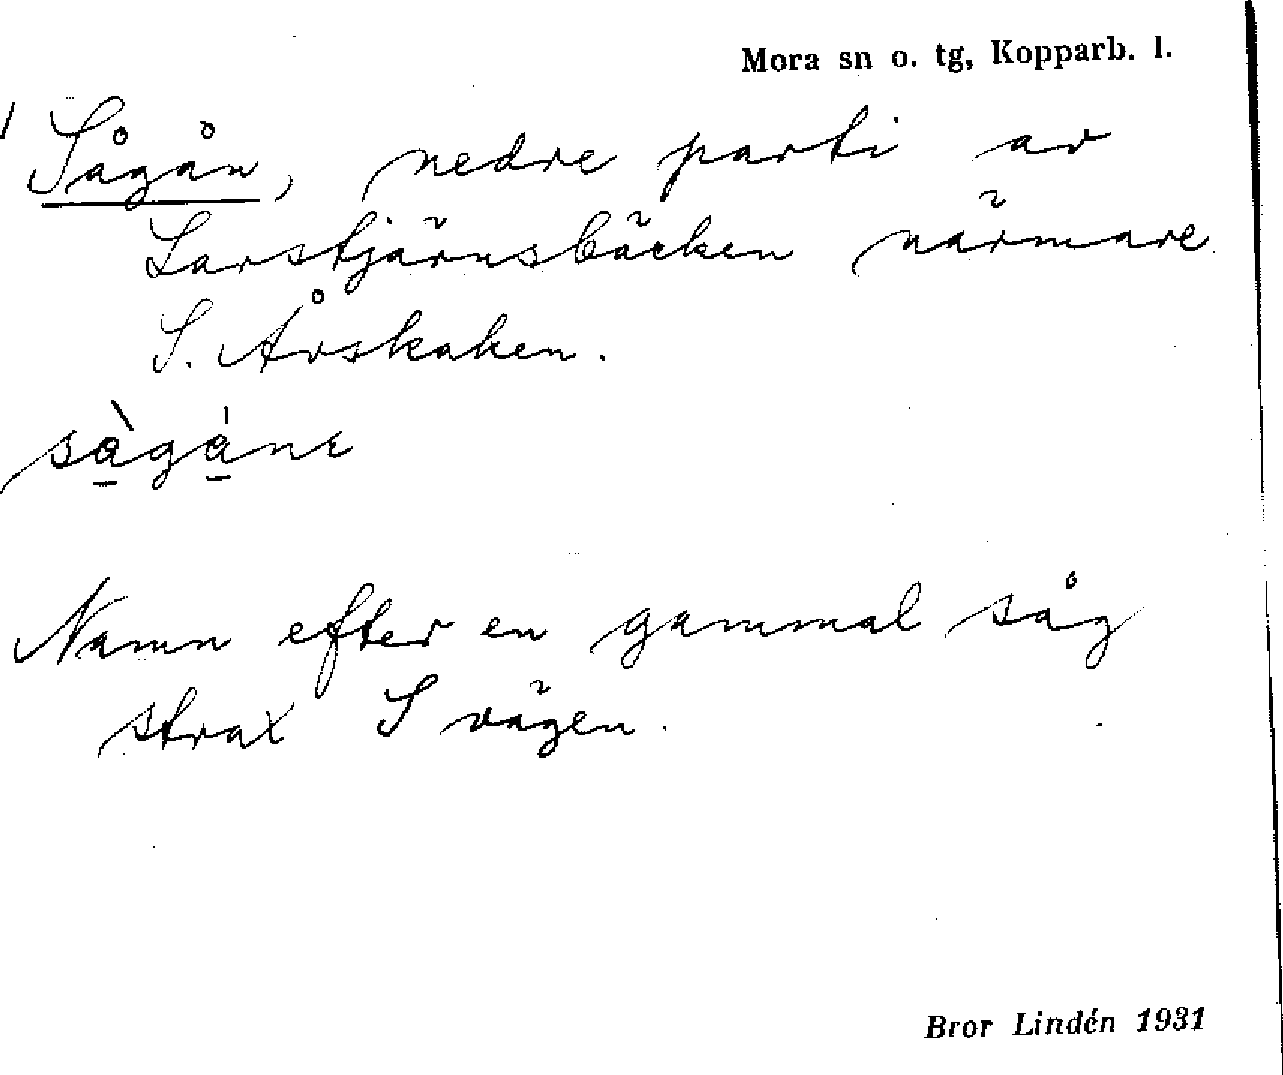 Mora sn o. tg, Kopparb. l.
Sågån, nedre parti av
Larstjärnsbäcken närmare
S. Åvskaken.
sàgáne
Namn efter en gammal såg
strax S vägen.
Bror Lindén 1931